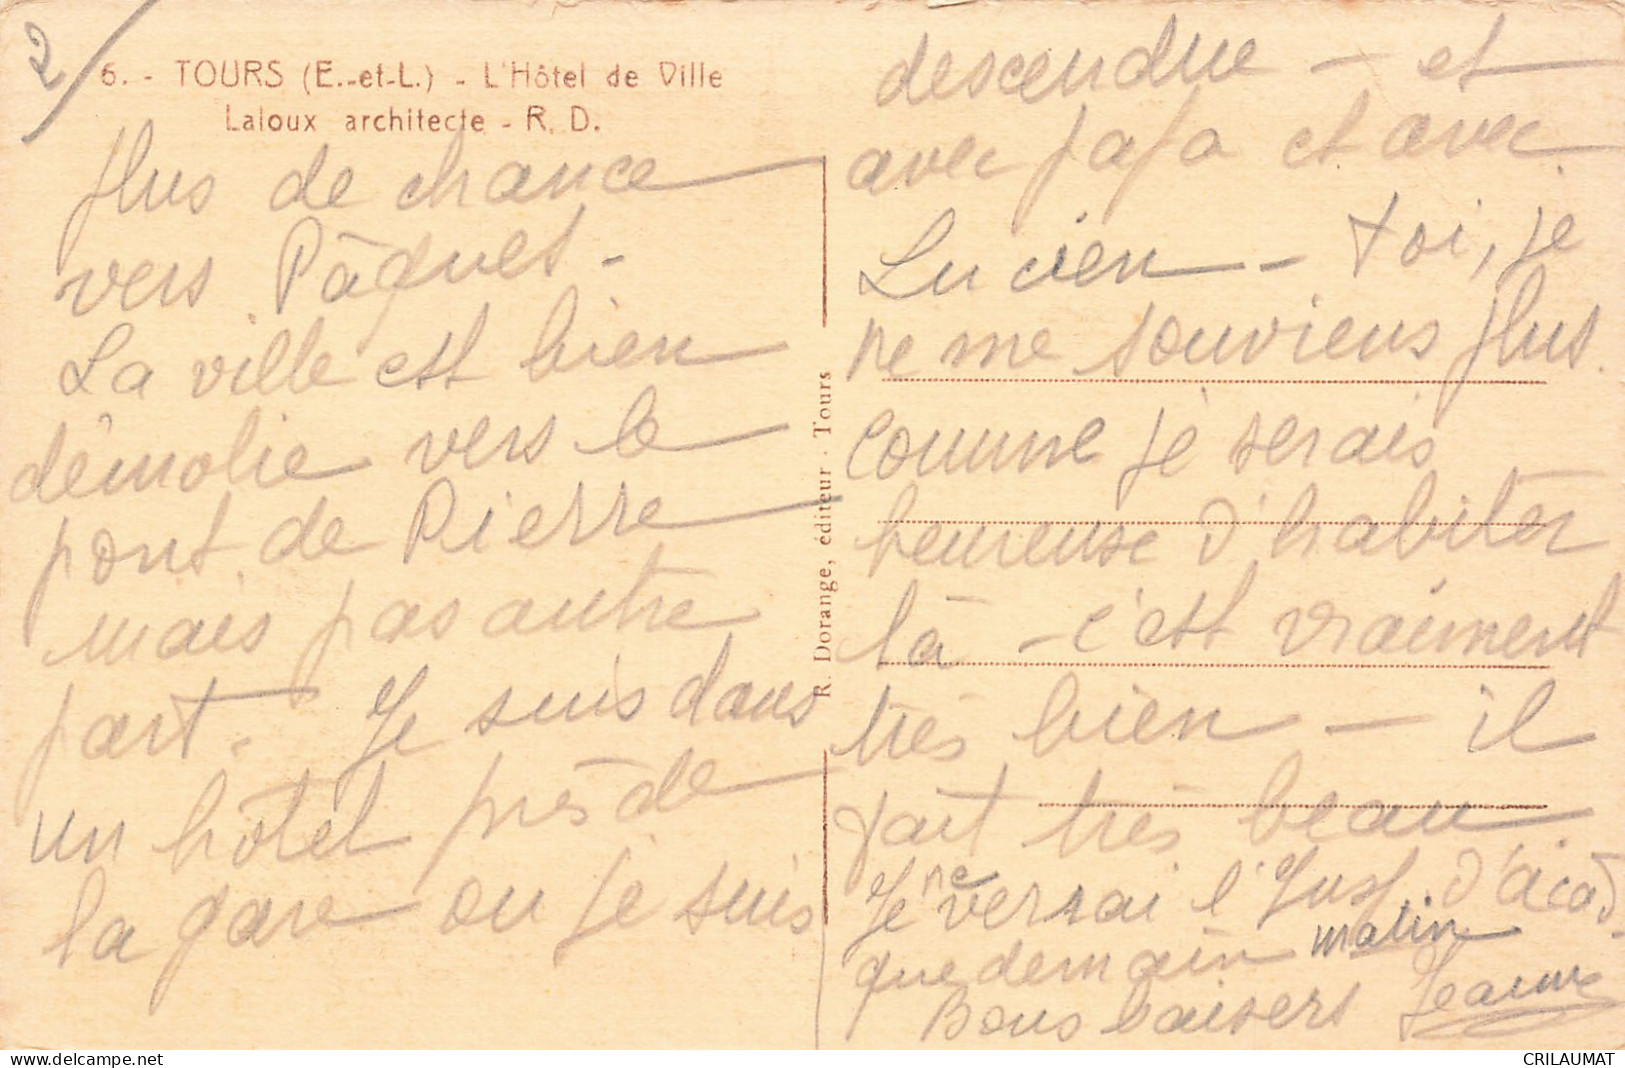 2/
6. - TOURS (E.-et-L.) - L'Hôtel de Ville
Laloux architecte - R. D.
plus de chance
vers Pâques -
La ville est bien
démolie vers le
pont de Pierre
mais pas autre
part. Je suis dans
un hôtel près de
la gare ou je suis
R. Dorange, éditeur - Tours
descendue - et
avec papa et avec
Lucien - toi, je
ne me souviens plus.
comme je serais
heureuse d'habiter
là - c'est vraiment
très bien - il
fait très beau
Je ne verrai l'Insp. d'acad.
que demain matin
Bons baisers Jeanne
CRILAUMAT
delcampe.net